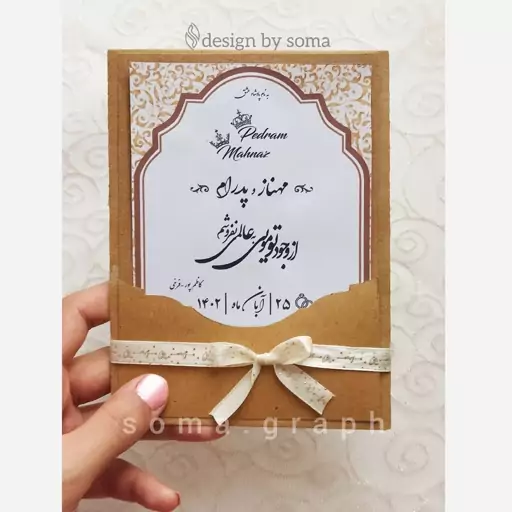 design by soma
به نام پادشاه عشق
Pedram
Mahnaz
مهناز و پدرام
از وجود تو مویی به عالمی نفروشم
کاظم پور - قرنی
۲۵ | آبان ماه | ۱۴۰۲
soma.graph